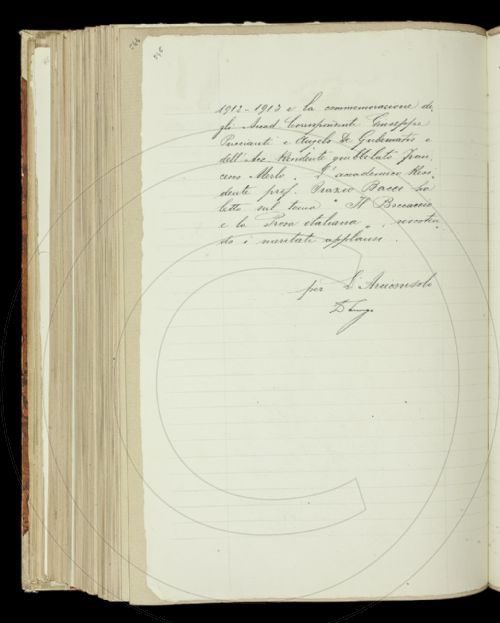 1912-1913 e la commemorazione de
gli Accad. Corrispondenti Giuseppe
Puccianti e Angelo De Gubernatis e
dell'Acc. Residente giubbilato Fran
cesco Merlo. L'accademico Resi
dente prof. Orazio Bacci ha
letto sul tema "Il Boccaccio
e la Prosa italiana",
do i meritati applausi.
per L'Arciconsolo